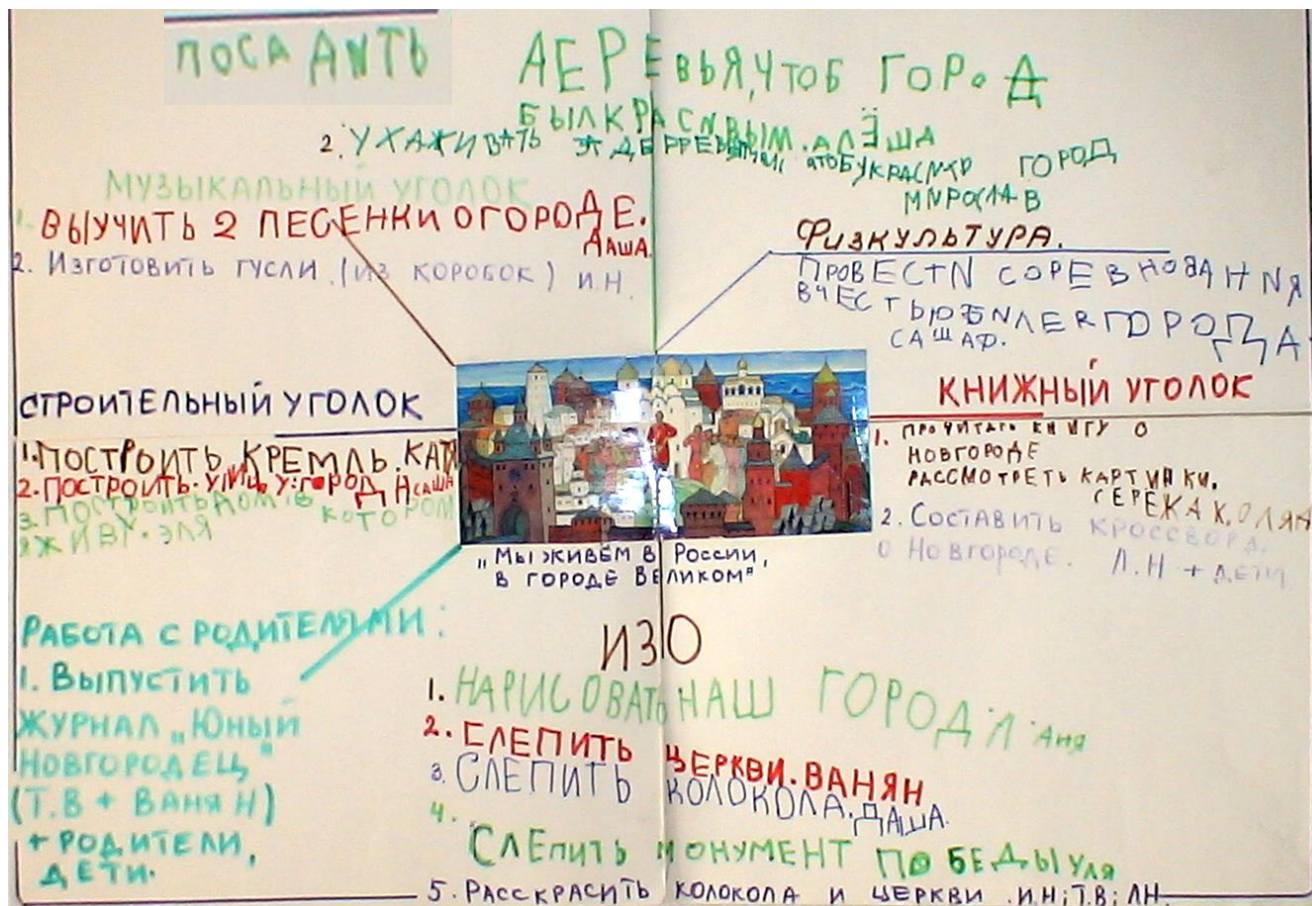 ПОСАДИТЬ ДЕРЕВЬЯ, ЧТОБ ГОРОД
БЫЛ КРАСИВЫМ. АЛЁША
2. УХАЖИВАТЬ ЗА ГОРОД
МИРОСЛАВ
МУЗЫКАЛЬНЫЙ УГОЛОК
1. ВЫУЧИТЬ 2 ПЕСЕНКИ О ГОРОДЕ.
ДАША.
2. ИЗГОТОВИТЬ ГУСЛИ. (ИЗ КОРОБОК) И.Н.
ФИЗКУЛЬТУРА.
ПРОВЕСТИ СОРЕВНОВАНИЯ
В ЧЕСТЬ ЮБИЛЕЯ ГОРОДА
САША Ф.
СТРОИТЕЛЬНЫЙ УГОЛОК
1. ПОСТРОИТЬ КРЕМЛЬ. КАТЯ
2. ПОСТРОИТЬ. УЛИЦУ: ГОРОД Н САША
3. ПОСТРОИТЬ ДОМ В КОТОРОМ
Я ЖИВУ. ЭЛЯ
КНИЖНЫЙ УГОЛОК
1. ПРОЧИТАТЬ КНИГУ О
НОВГОРОДЕ
РАССМОТРЕТЬ КАРТИНКИ.
СЕРЁЖА К, ОЛЯ Н
2. СОСТАВИТЬ КРОССВОРД
О НОВГОРОДЕ. Л.Н + ДЕТИ
„МЫ ЖИВЁМ В РОССИИ,
В ГОРОДЕ ВЕЛИКОМ"
РАБОТА С РОДИТЕЛЯМИ:
1. ВЫПУСТИТЬ
ЖУРНАЛ „ЮНЫЙ
НОВГОРОДЕЦ"
(Т.В + ВАНЯ Н)
+ РОДИТЕЛИ,
ДЕТИ.
ИЗО
1. НАРИСОВАТЬ НАШ ГОРОД. Л. АНЯ
2. СЛЕПИТЬ ЦЕРКВИ. ВАНЯ Н
3. СЛЕПИТЬ КОЛОКОЛА. ДАША.
4. СЛЕПИТЬ МОНУМЕНТ ПОБЕДЫ УЛЯ
5. РАССКРАСИТЬ КОЛОКОЛА И ЦЕРКВИ. И.Н; Т.В; Л.Н.